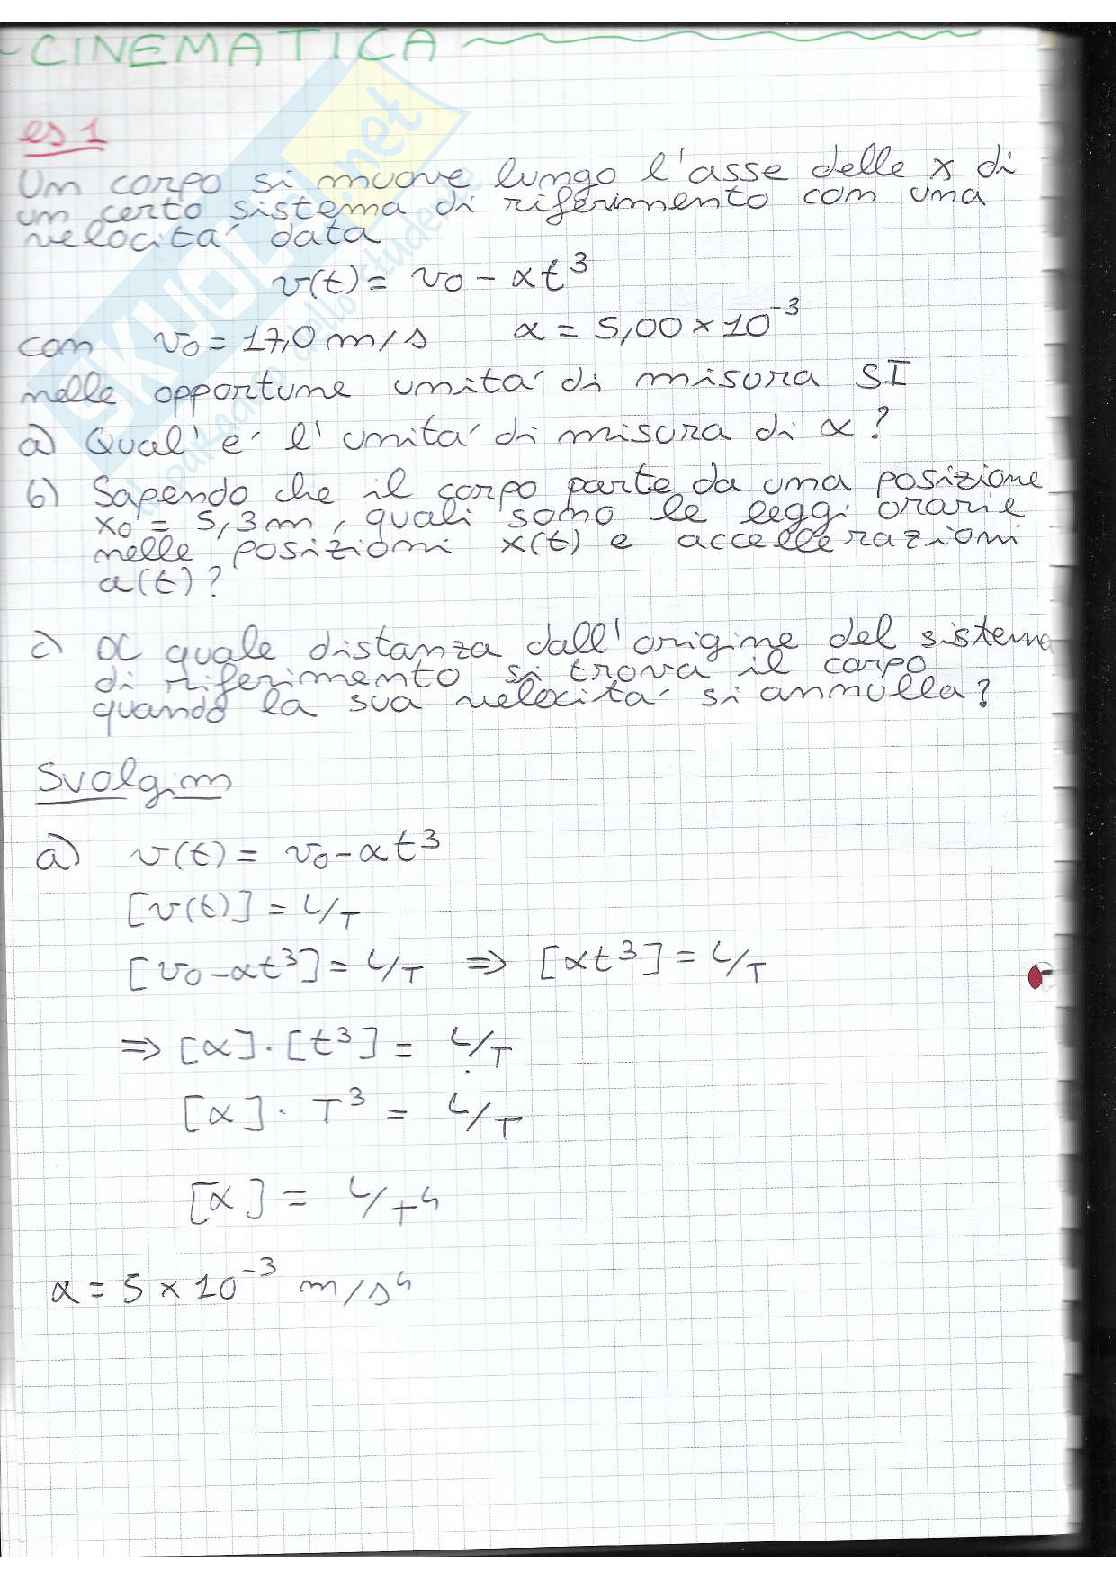 CINEMATICA
es 1
Un corpo si muove lungo l'asse delle x di
un certo sistema di riferimento con una
velocità data
v(t) = v0 - αt³
con v0 = 17,0 m/s α = 5,00 × 10⁻³
nelle opportune unità di misura SI
a) Qual'è l'unità di misura di α?
b) Sapendo che il corpo parte da una posizione
x0 = 5,3m, quali sono le leggi orarie
nelle posizioni x(t) e accellerazioni
a(t)?
c) A quale distanza dall'origine del sistema
di riferimento si trova il corpo
quando la sua velocità si annulla?
Svolgim
a) v(t) = v0 - αt³
[v(t)] = L/T
[v0 - αt³] = L/T ⇒ [αt³] = L/T
⇒ [α]·[t³] = L/T
[α]· T³ = L/T
[α] = L/T⁴
α = 5 × 10⁻³ m/s⁴
SKUOLA.net